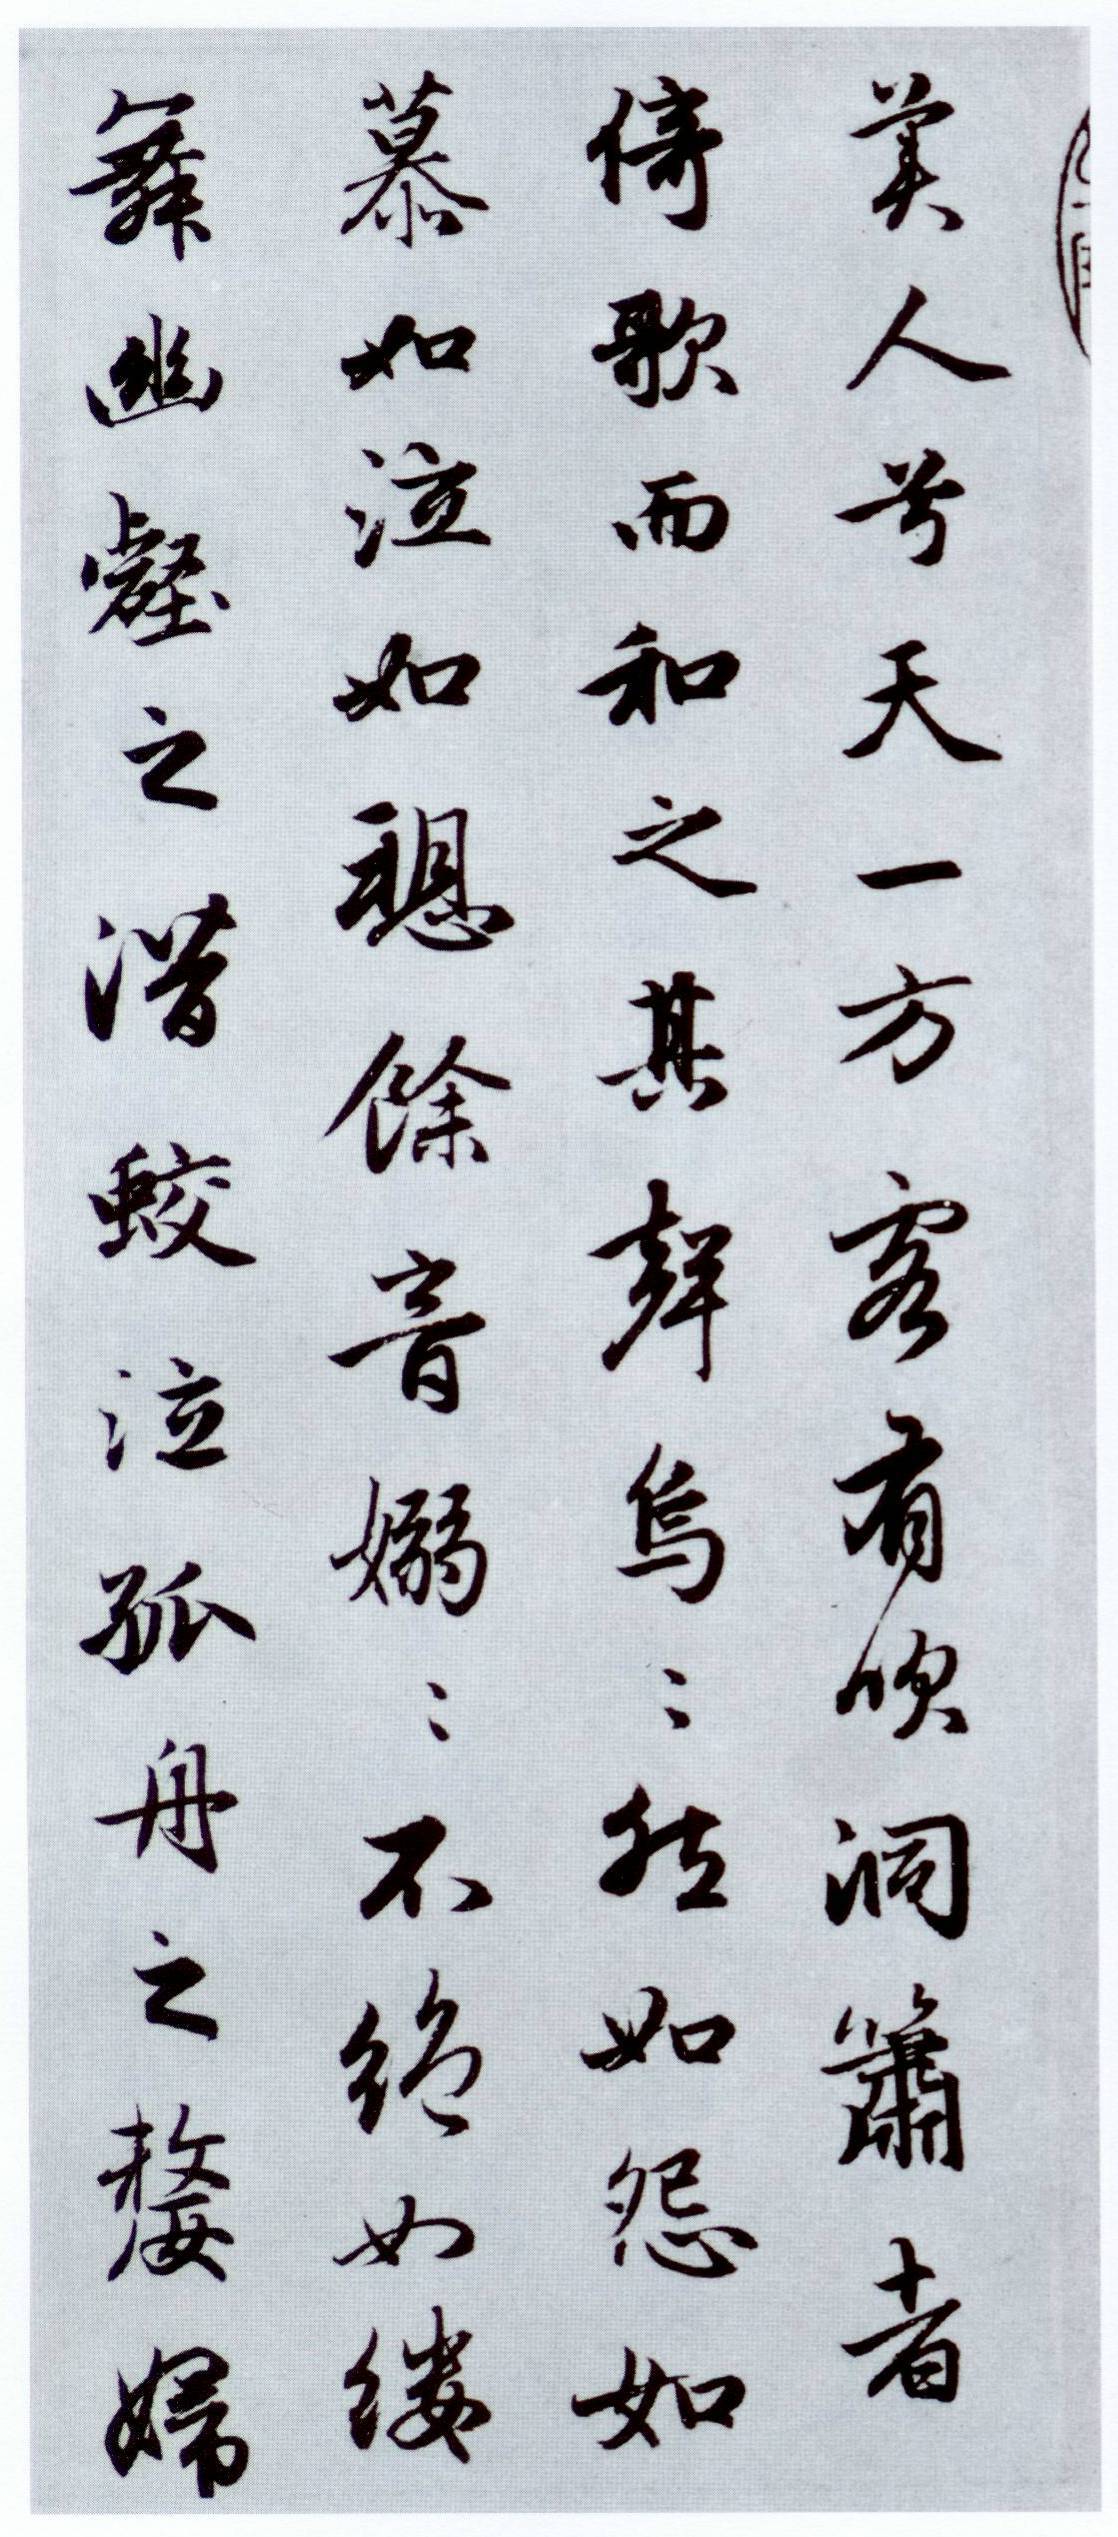 美人兮天一方客有吹洞簫者
倚歌而和之其聲烏〻然如怨如
慕如泣如餘音嫋〻不絕如縷
舞幽壑之潛蛟泣孤舟之嫠婦